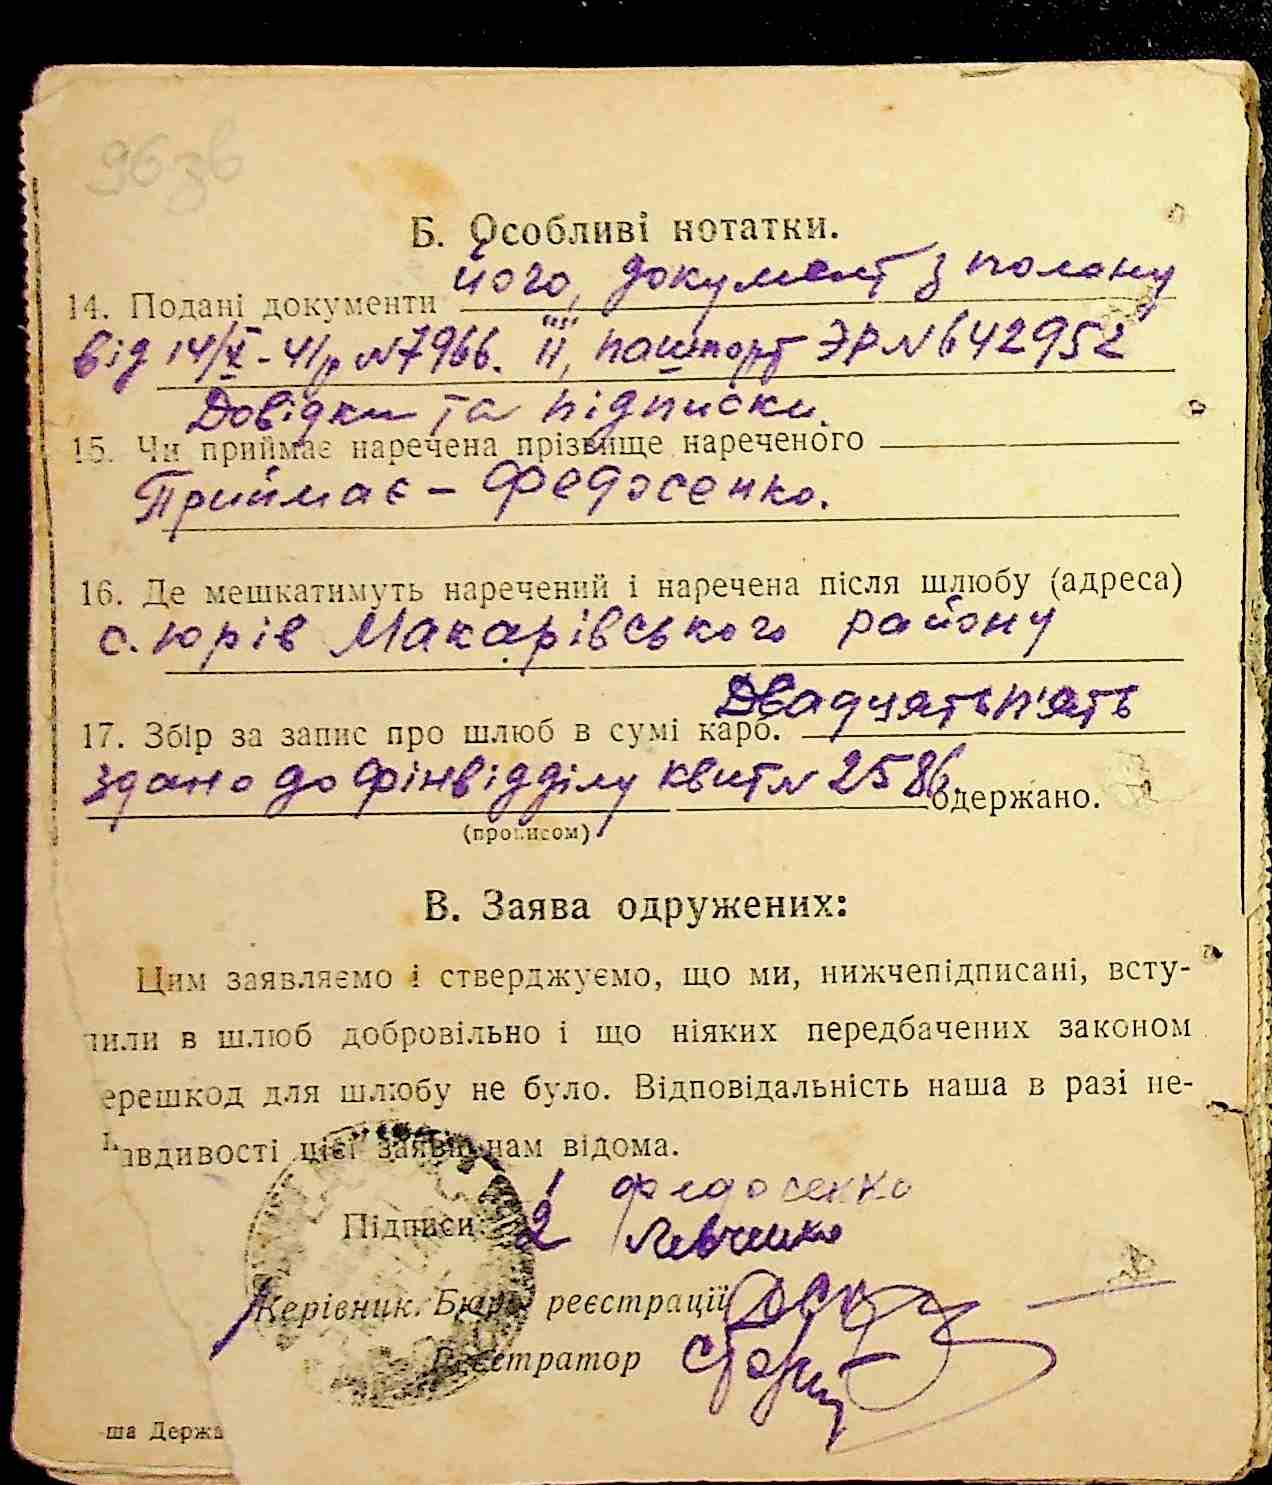 96 зв
Б. Особливі нотатки.
14. Подані документи його, документ з полону
від 14/X-41р №7966. її, пашпорт ЭР №642952
Довідки та підписки.
15. Чи приймає наречена прізвище нареченого
Приймає – Федосенко.
16. Де мешкатимуть наречений і наречена після шлюбу (адреса)
с. Юрів Макарівського району
17. Збір за запис про шлюб в сумі карб. Двадцять п'ять
здано до фінвідділу квит № 2586. одержано.
(прописом)
В. Заява одружених:
Цим заявляємо і стверджуємо, що ми, нижчепідписані, всту-
пили в шлюб добровільно і що ніяких передбачених законом
ерешкод для шлюбу не було. Відповідальність наша в разі не-
авдивості цієї заяви нам відома.
Підписи: 1 Федосенко
2 Левченко
Керівник Бюра реєстрації
Реєстратор
ша Держа